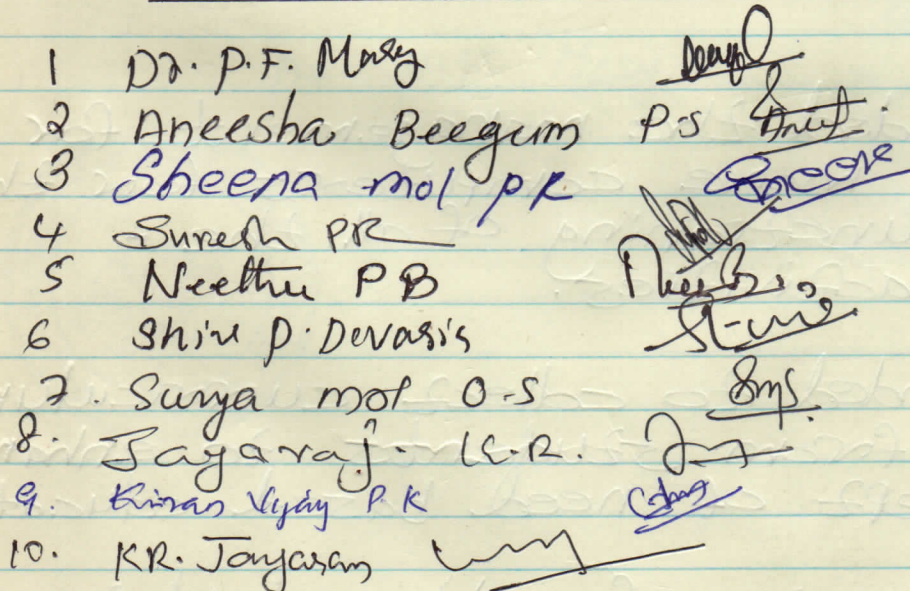 1 Dr. P.F. Mary
2 Aneesha Beegum P.S
3 Sheena mol PR
4 Suresh PR
5 Neethu P B
6 Shine P. Devasis
7. Surya mol O.S
8. Jayaraj. K.R.
9. Kiran Vijay P K
10. KR. Jayaram